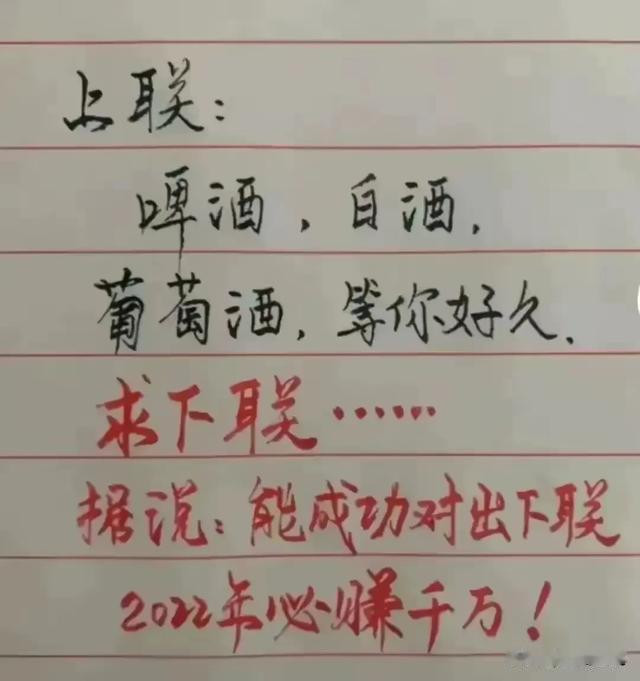 上联：
啤酒，白酒，
葡萄酒，等你好久．
求下联……
据说：能成功对出下联
2022年必赚千万！